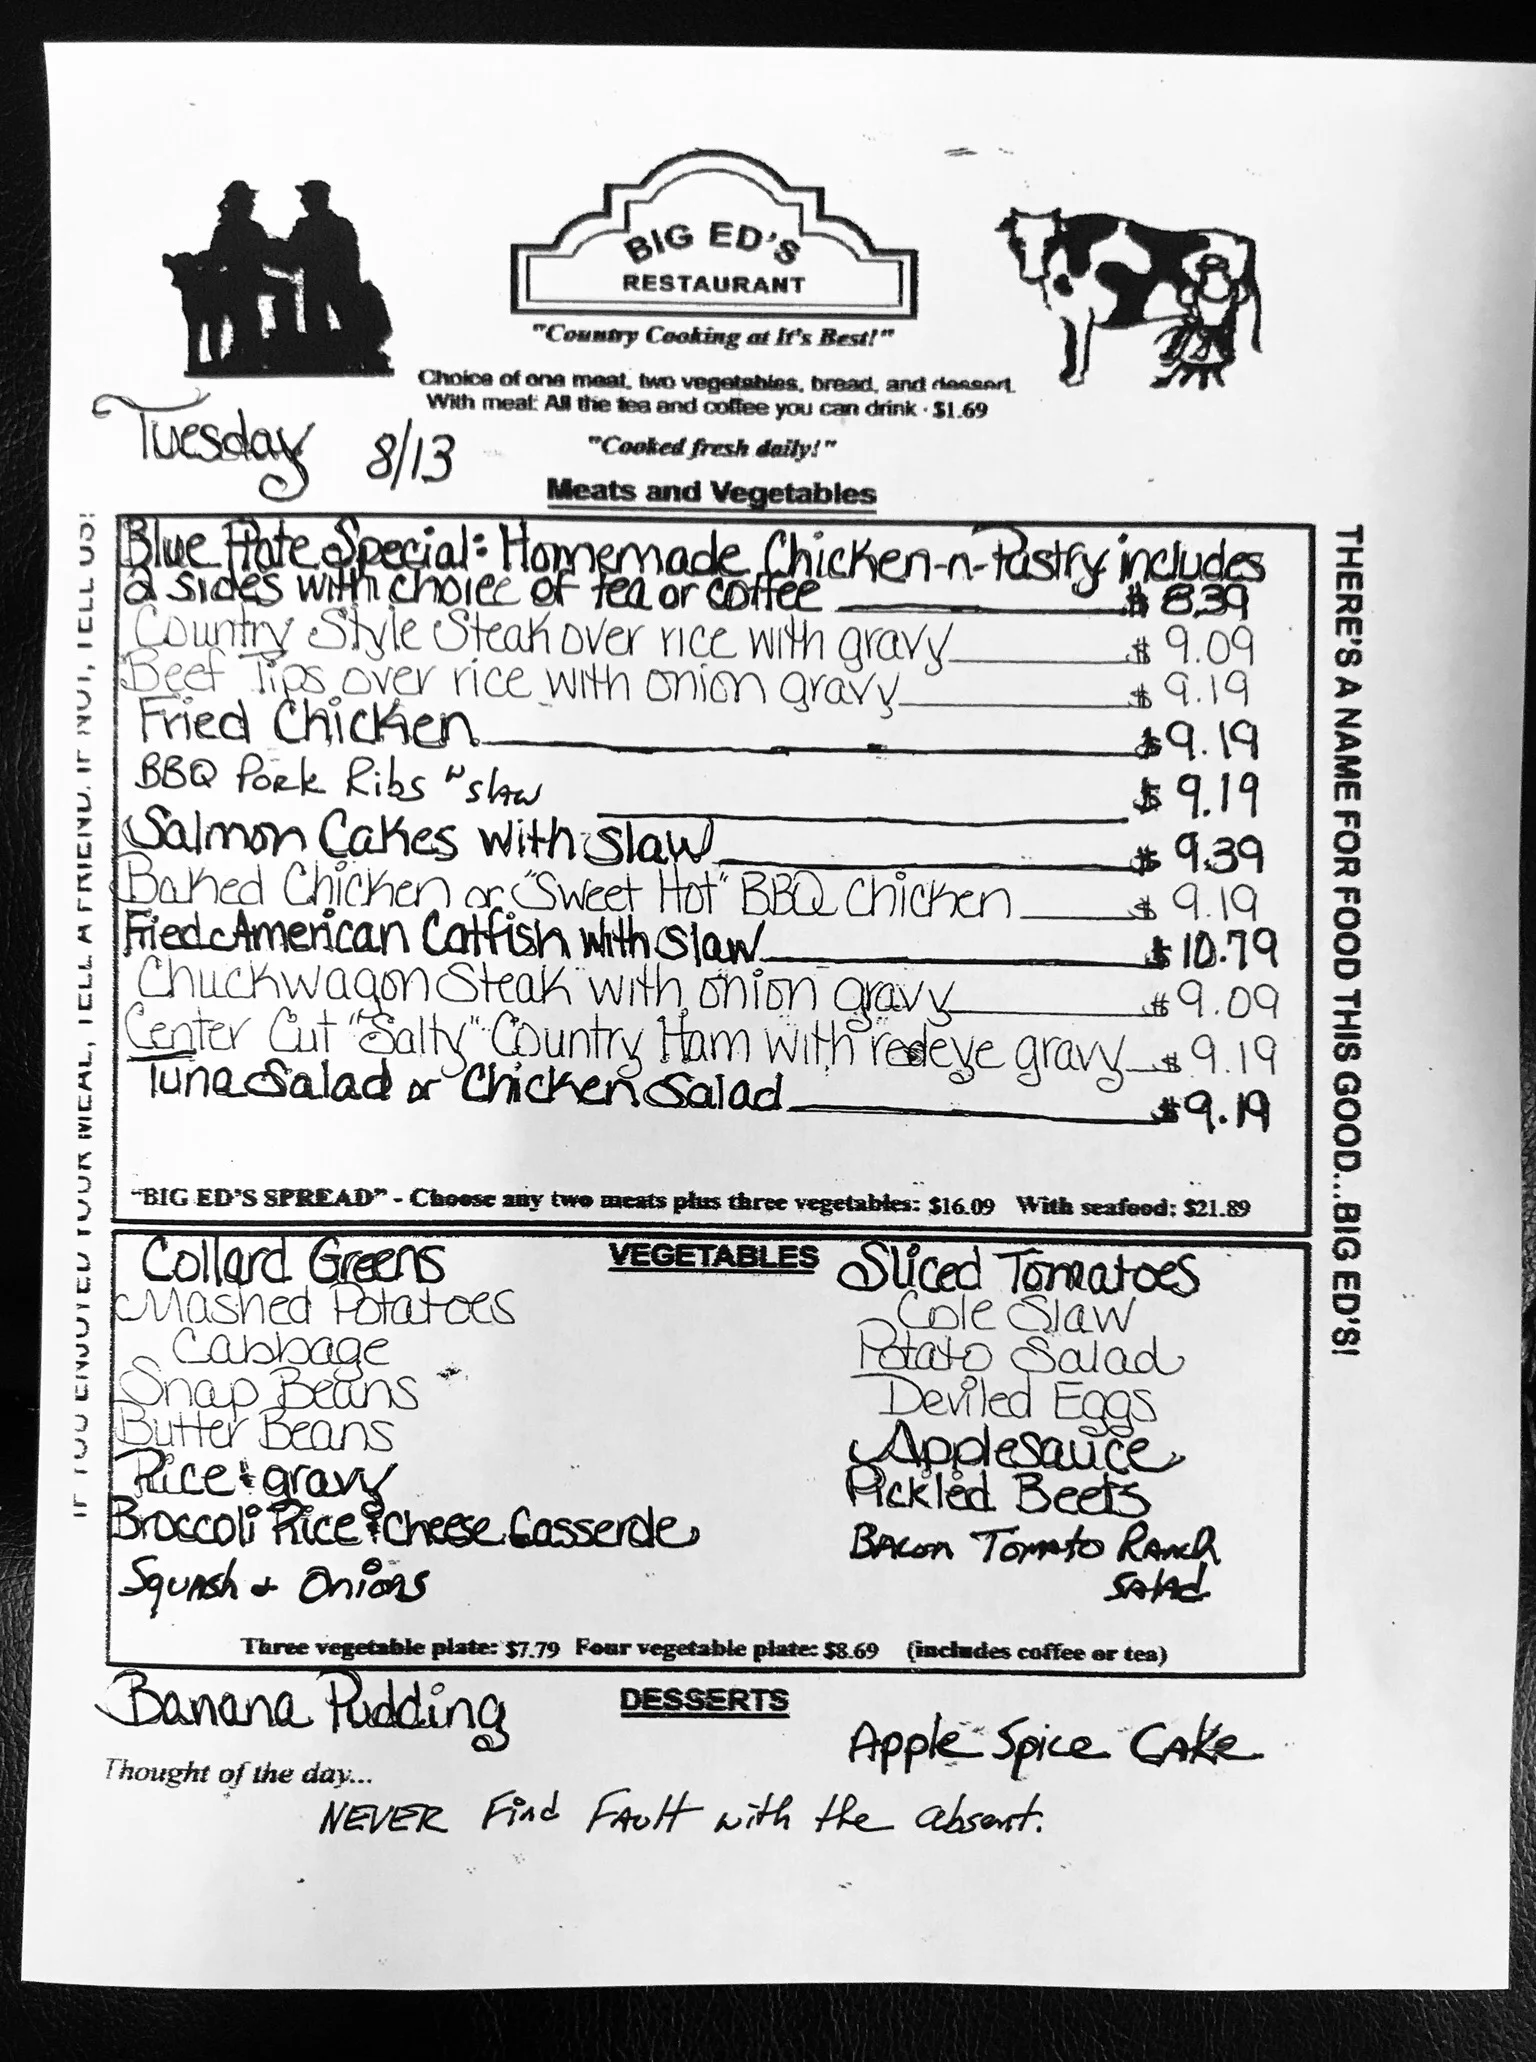 BIG ED'S
RESTAURANT
"Country Cooking at It's Best!"
Choice of one meat, two vegetables, bread, and dessert.
With meat: All the tea and coffee you can drink · $1.69
Tuesday 8/13
"Cooked fresh daily!"
Meats and Vegetables
Blue Plate Special: Homemade Chicken-n-Pastry includes
2 sides with choice of tea or coffee $ 8.39
Country Style Steak over rice with gravy $ 9.09
Beef Tips over rice with onion gravy $ 9.19
Fried Chicken $ 9.19
BBQ Pork Ribs "N slaw $ 9.19
Salmon Cakes with slaw $ 9.39
Baked Chicken or "Sweet Hot" BBQ Chicken $ 9.19
Fried American Catfish with slaw $ 10.79
Chuckwagon Steak with onion gravy $ 9.09
Center Cut "Salty" Country Ham with redeye gravy $ 9.19
Tuna Salad or Chicken Salad $ 9.19
"BIG ED'S SPREAD" - Choose any two meats plus three vegetables: $16.09 With seafood: $21.89
VEGETABLES
Collard Greens
Mashed Potatoes
Cabbage
Snap Beans
Butter Beans
Rice & gravy
Broccoli Rice & Cheese Casserole
Squash & Onions
Sliced Tomatoes
Cole Slaw
Potato Salad
Deviled Eggs
Applesauce
Pickled Beets
Bacon Tomato Ranch
Salad
Three vegetable plate: $7.79 Four vegetable plate: $8.69 (includes coffee or tea)
DESSERTS
Banana Pudding
Apple Spice Cake
Thought of the day...
NEVER Find FAult with the absent.
IF YOU ENJOYED YOUR MEAL, TELL A FRIEND. IF NOT, TELL US!
THERE'S A NAME FOR FOOD THIS GOOD...BIG ED'S!